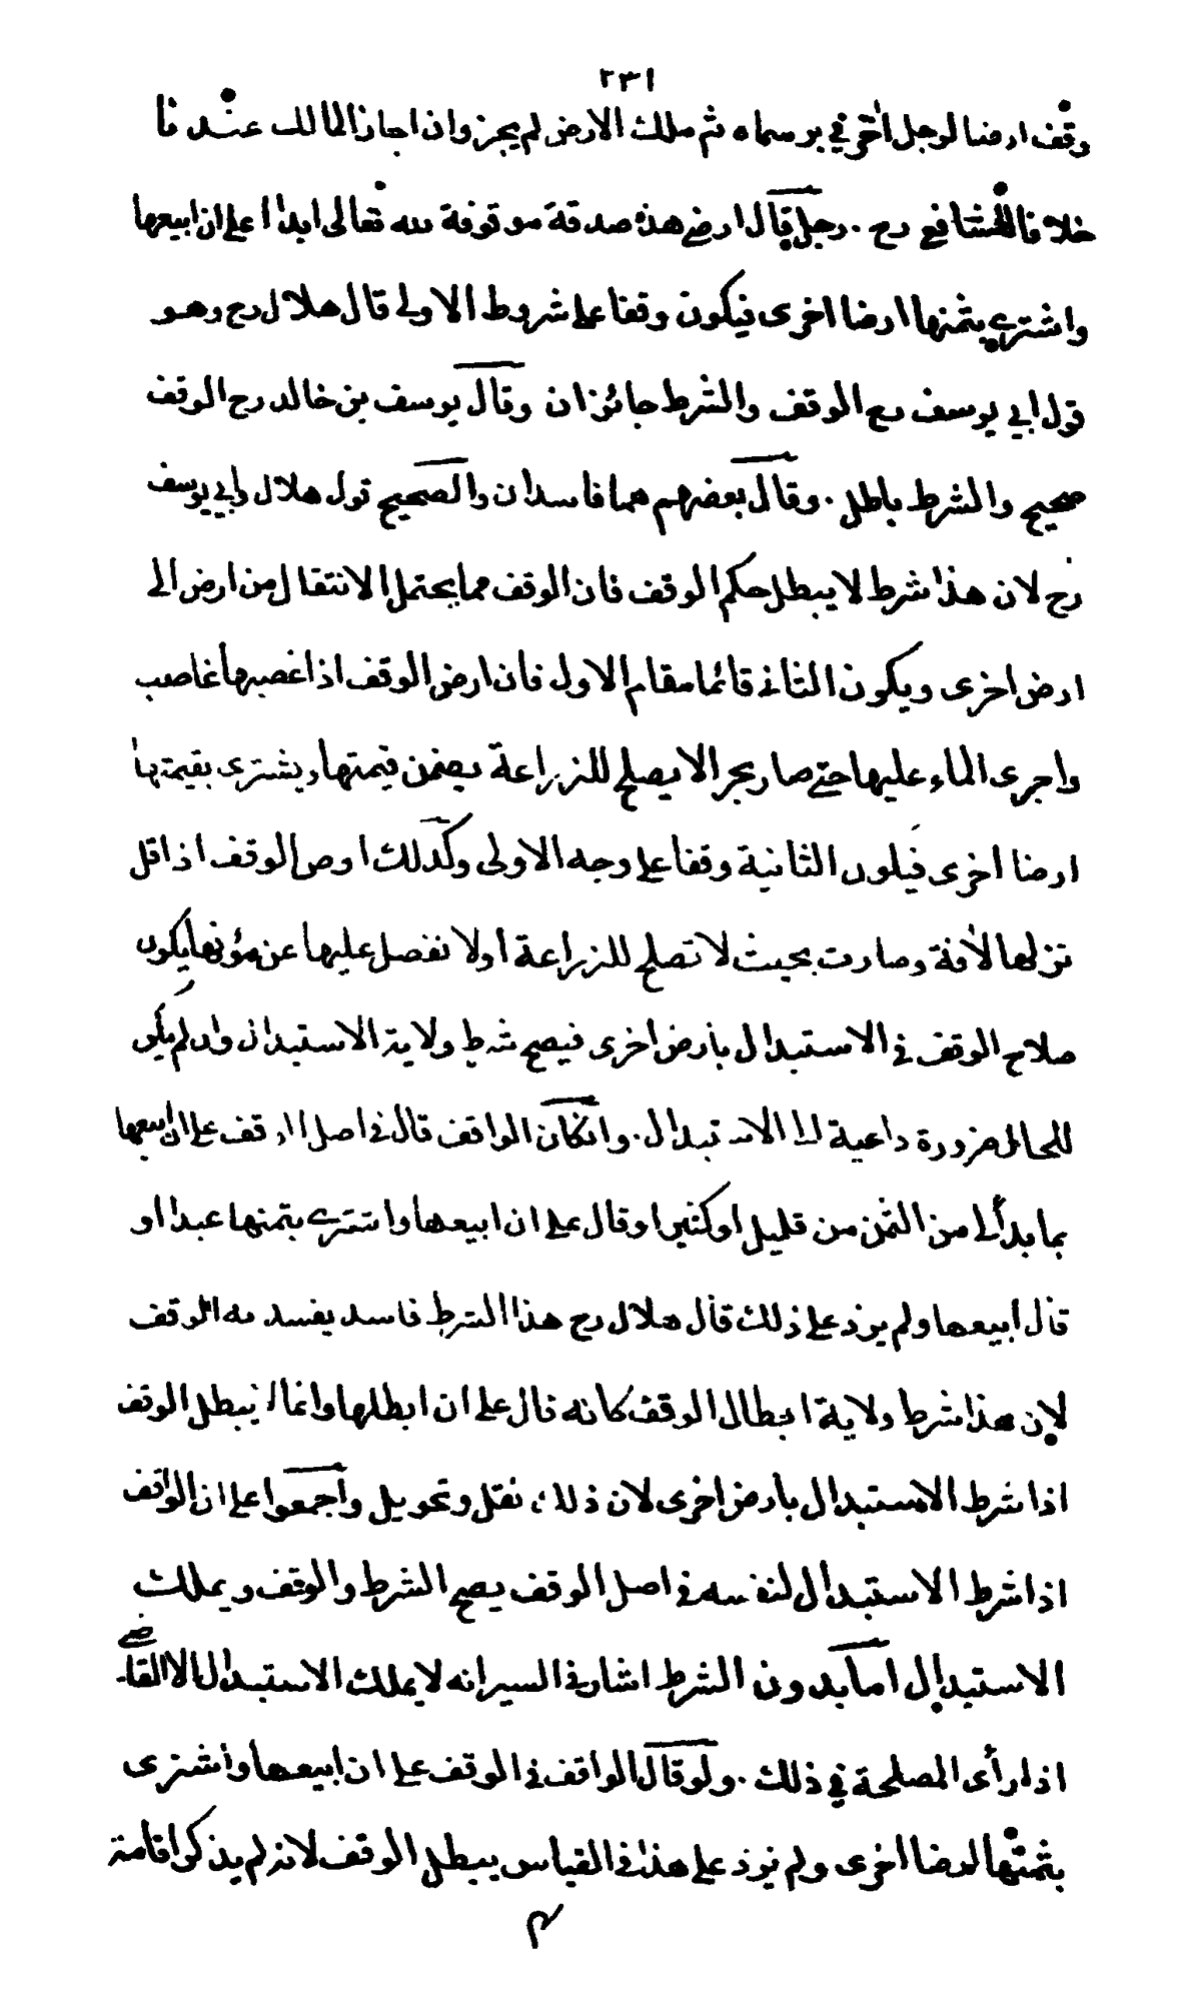 ٢٣١
وقف ارضا لرجل اخر في بر سماه ثم ملك الارض لم يجز وان اجاز المالك عندنا
خلافا للشافعي رح . رجل قال ارضي هذه صدقة موقوفة لله تعالى ابدا على ان ابيعها
واشتري بثمنها ارضا اخرى فيكون وقفا على شروط الاولى قال هلال رح وهو
قول ابي يوسف رح الوقف والشرط جائزان وقال يوسف بن خالد رح الوقف
صحيح والشرط باطل . وقال بعضهم هما فاسدان والصحيح قول هلال وابي يوسف
رح لان هذا شرط لا يبطل حكم الوقف فان الوقف مما يحتمل الانتقال من ارض الى
ارض اخرى ويكون الثاني قائما مقام الاول فان ارض الوقف اذا غصبها غاصب
واجرى الماء عليها حتى صار بحرا لا يصلح للزراعة يضمن قيمتها ويشترى بقيمتها
ارضا اخرى فيكون الثانية وقفا على وجه الاولى وكذلك ارض الوقف اذا قل
نزلها لآفة وصارت بحيث لا تصلح للزراعة أو لا تفضل عليها عن مؤنها يكون
صلاح الوقف في الاستبدال بأرض اخرى فيصح شرط ولاية الاستبدال وان لم يكن
للحال ضرورة داعية الى الاستبدال . وانكان الواقف قال في اصل الوقف على ان ابيعها
بما بدأ لي من الثمن من قليل او كثير او قال على ان ابيعها واشتري بثمنها عبدا او
قال ابيعها ولم يزد على ذلك قال هلال رح هذا الشرط فاسد يفسد به الوقف
لان هذا شرط ولاية ابطال الوقف كانه قال على ان ابطلها وانما لا يبطل الوقف
اذا شرط الاستبدال بأرض اخرى لان ذلك نقل وتحويل وأجمعوا على ان الواقف
اذا شرط الاستبدال لنفسه في اصل الوقف يصح الشرط والوقف ويملك
الاستبدال اما بدون الشرط اشار في السير انه لا يملك الاستبدال الا القاضي
اذا رأى المصلحة في ذلك . ولو قال الواقف في الوقف على ان ابيعها واشترى
بثمنها ارضا اخرى ولم يزد على هذا في القياس يبطل الوقف لانه لم يذكر اقامة